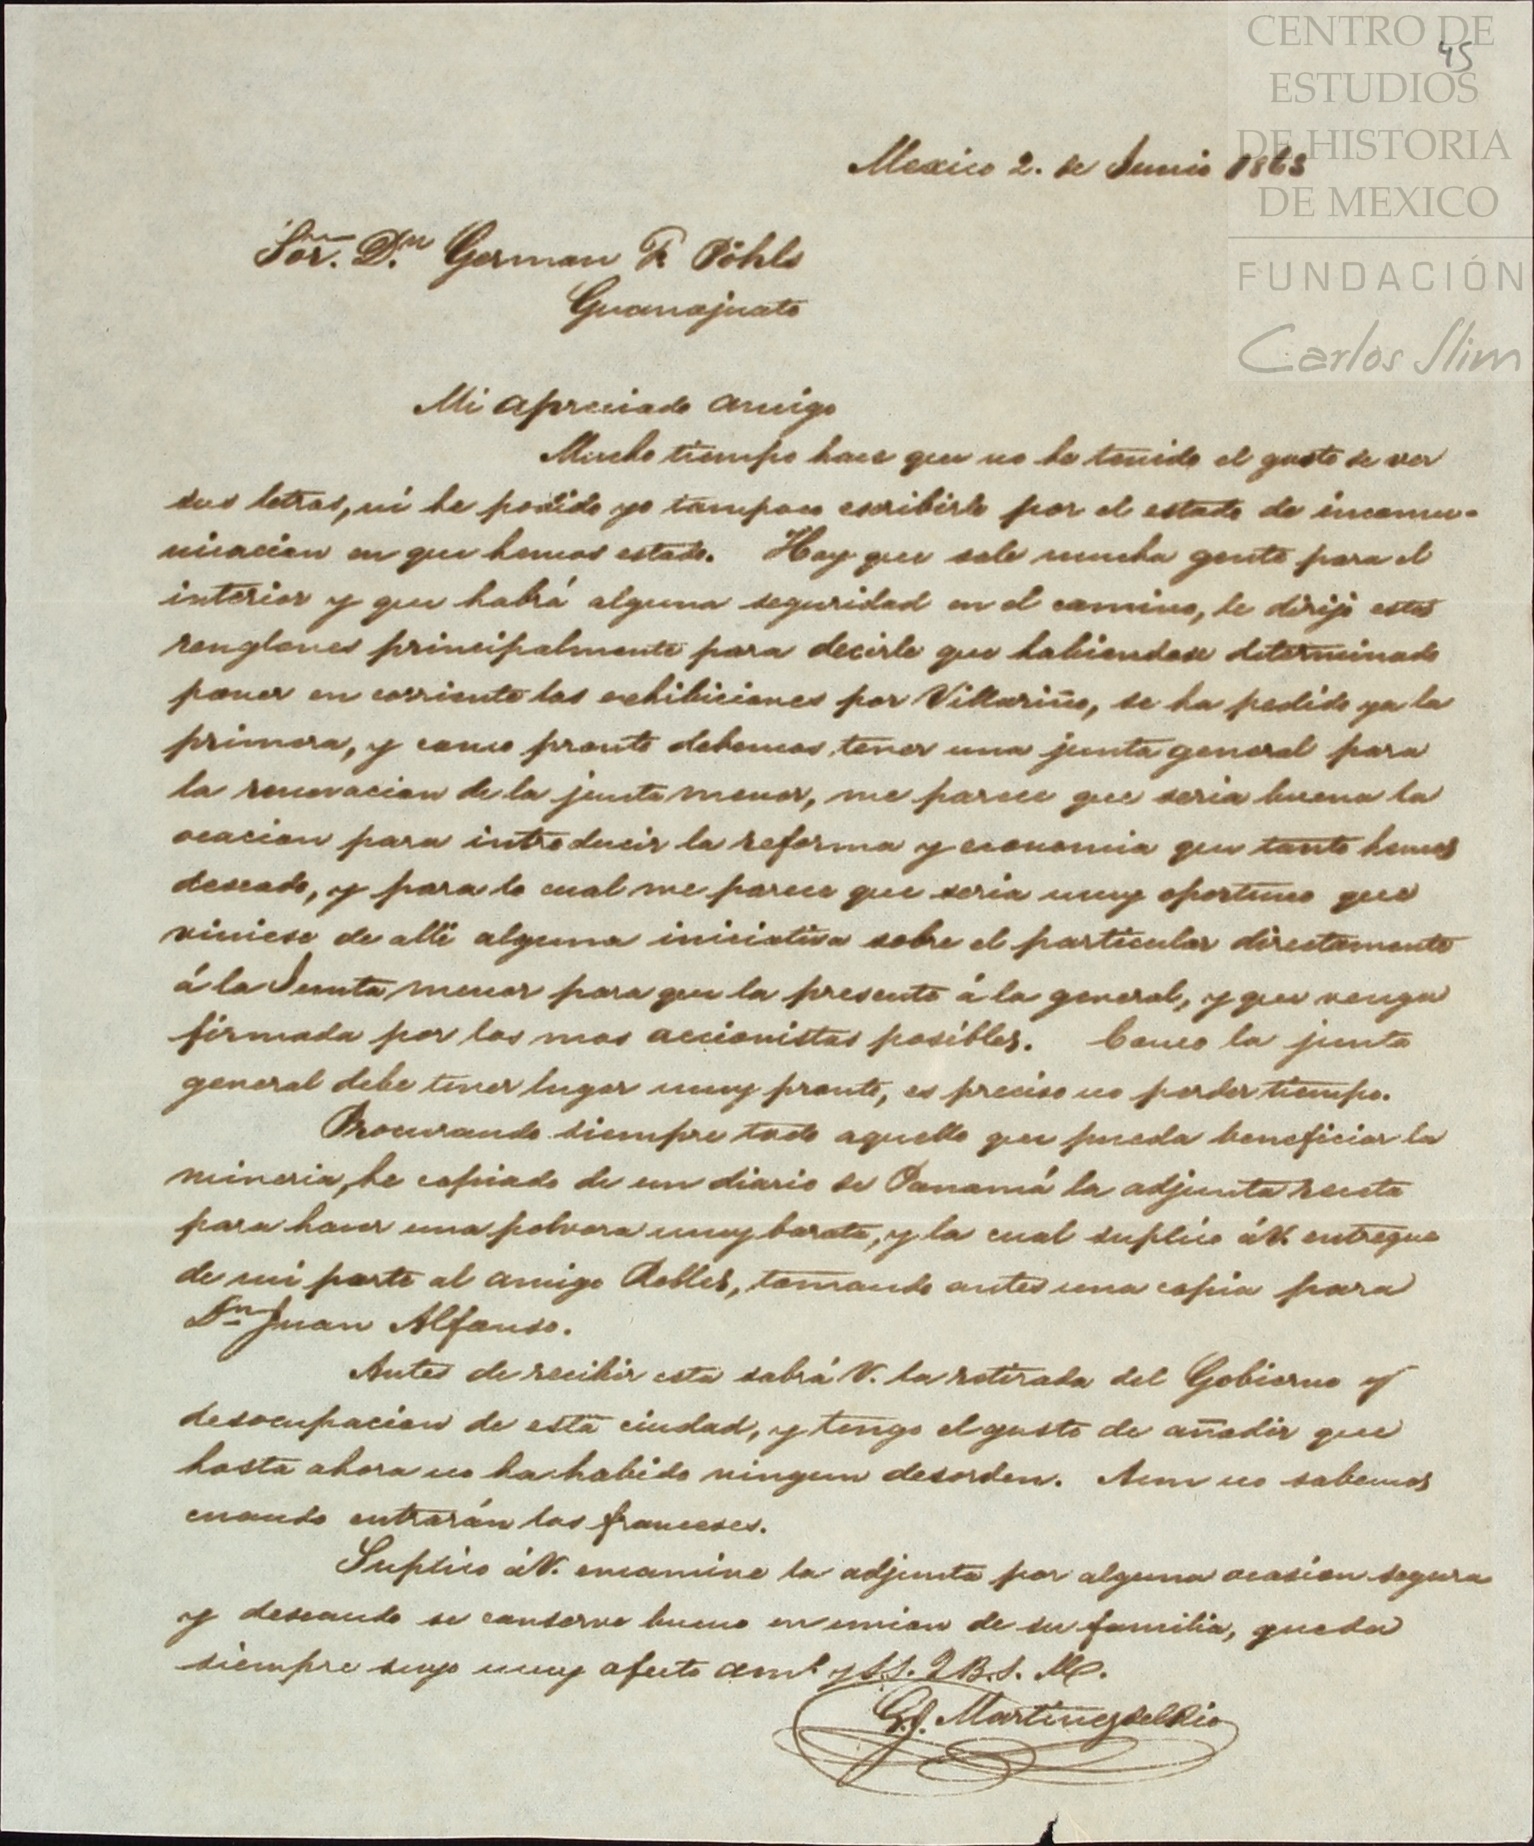 CENTRO DE
ESTUDIOS
DE HISTORIA
DE MEXICO
FUNDACIÓN
Carlos Slim
45
Mexico 2. de Junio 1863
Sor. Dn. German F. Pöhls
Guanajuato
Mi apreciado amigo
Mucho tiempo hace que no he tenido el gusto de ver
sus letras, ni he podido yo tampoco escribirle por el estado de incomu-
nicacion en que hemos estado. Hoy que sale mucha gente para el
interior y que habrá alguna seguridad en el camino, le dirijo estos
renglones principalmente para decirle que habiendose determinado
poner en corriente las exhibiciones por Villariño, se ha pedido ya la
primera, y como pronto debemos tener una junta general para
la renovacion de la junta menor, me parece que seria buena la
ocacion para introducir la reforma y economia que tanto hemos
deseado, y para lo cual me parece que seria muy oportuno que
viniese de allí alguna iniciativa sobre el particular directamente
á la Junta menor para que la presente á la general, y que venga
firmada por los mas accionistas posibles. Como la junta
general debe tener lugar muy pronto, es preciso no perder tiempo.
Procurando siempre todo aquello que pueda beneficiar la
mineria, he copiado de un diario de Panamá la adjunta receta
para hacer una polvora muy barata, y la cual suplico á V. entregue
de mi parte al amigo Robles, tomando antes una copia para
Dn Juan Alfonso.
Antes de recibir esta sabrá V. la retirada del Gobierno y
desocupacion de esta ciudad, y tengo el gusto de añadir que
hasta ahora no ha habido ningun desorden. Aun no sabemos
cuando entrarán los franceses.
Suplico á V. encamine la adjunta por alguna ocasion segura
y deseando se conserve bueno en union de su familia, queda
siempre suyo muy afecto amo. y S.S. Q B. S. M.
G. J. Martinez del Rio